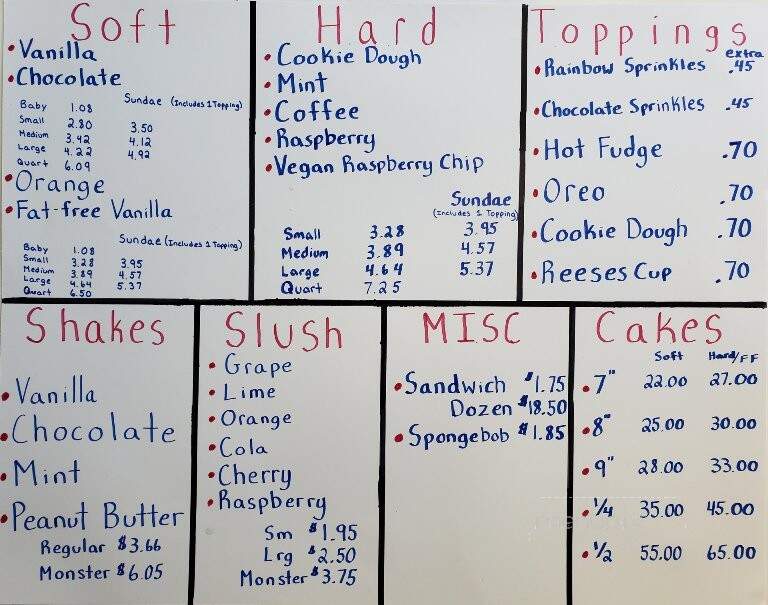 Soft
•Vanilla
•Chocolate
Sundae (Includes 1 Topping)
Baby 1.08
Small 2.80 3.50
Medium 3.42 4.12
Large 4.22 4.92
Quart 6.09
•Orange
•Fat-free Vanilla
Sundae (Includes 1 Topping)
Baby 1.08
Small 3.28 3.95
Medium 3.89 4.57
Large 4.64 5.37
Quart 6.50
Hard
•Cookie Dough
•Mint
•Coffee
•Raspberry
•Vegan Raspberry Chip
Sundae
(Includes 1 Topping)
Small 3.28 3.95
Medium 3.89 4.57
Large 4.64 5.37
Quart 7.25
Toppings
extra
•Rainbow Sprinkles .45
•Chocolate Sprinkles .45
•Hot Fudge .70
•Oreo .70
•Cookie Dough .70
•Reeses Cup .70
Shakes
•Vanilla
•Chocolate
•Mint
•Peanut Butter
Regular $3.66
Monster $6.05
Slush
•Grape
•Lime
•Orange
•Cola
•Cherry
•Raspberry
Sm $1.95
Lrg $2.50
Monster $3.75
MISC
•Sandwich $1.75
Dozen $18.50
•Spongebob $1.85
Cakes
Soft Hard/FF
•7" 22.00 27.00
•8" 25.00 30.00
•9" 28.00 33.00
•1/4 35.00 45.00
•1/2 55.00 65.00